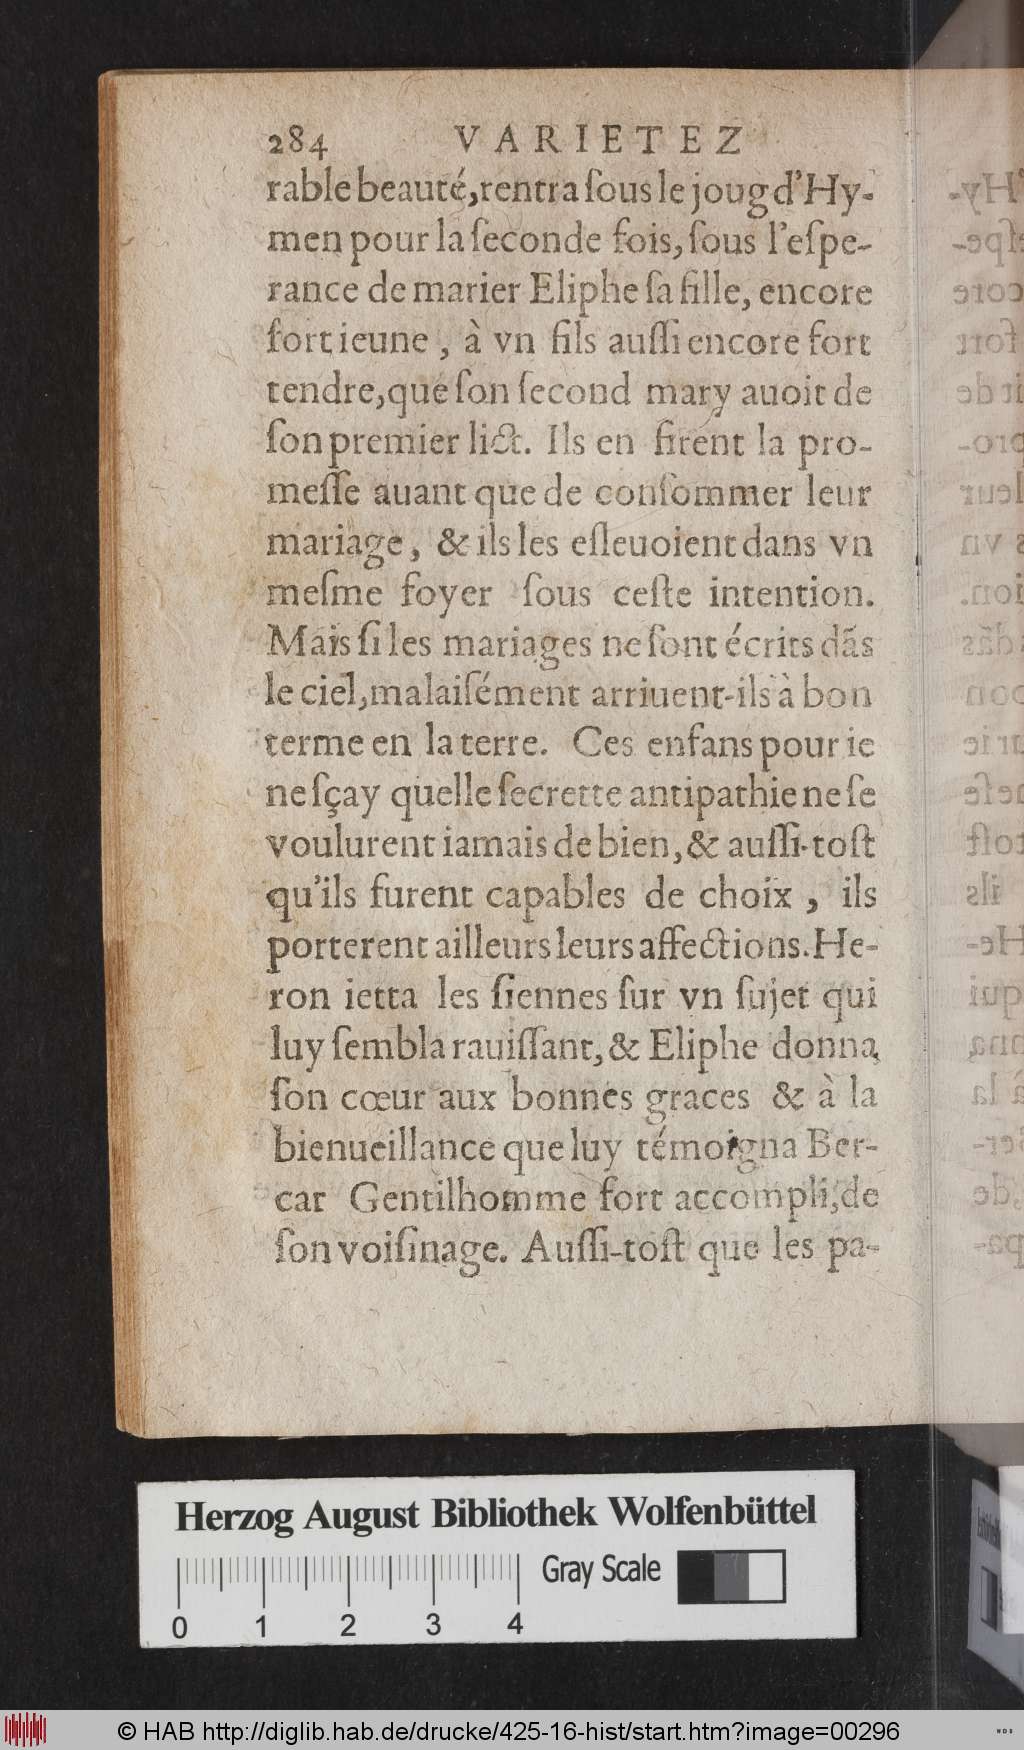 284 VARIETEZ
rable beauté, rentra ſous le joug d'Hy-
men pour la ſeconde fois, ſous l'eſpe-
rance de marier Eliphe ſa fille, encore
fort ieune, à vn fils auſſi encore fort
tendre, que ſon ſecond mary auoit de
ſon premier lict. Ils en firent la pro-
meſſe auant que de conſommer leur
mariage, & ils les eſleuoient dans vn
meſme foyer ſous ceſte intention.
Mais ſi les mariages ne ſont écrits dãs
le ciel, malaiſément arriuent-ils à bon
terme en la terre. Ces enfans pour ie
ne ſçay quelle ſecrette antipathie ne ſe
voulurent iamais de bien, & auſſi-toſt
qu'ils furent capables de choix, ils
porterent ailleurs leurs affections. He-
ron ietta les ſiennes ſur vn ſujet qui
luy ſembla rauiſſant, & Eliphe donna
ſon cœur aux bonnes graces & à la
bienueillance que luy témoigna Ber-
car Gentilhomme fort accompli, de
ſon voiſinage. Auſſi-toſt que les pa-
Herzog August Bibliothek Wolfenbüttel
Gray Scale
0 1 2 3 4
© HAB http://diglib.hab.de/drucke/425-16-hist/start.htm?image=00296